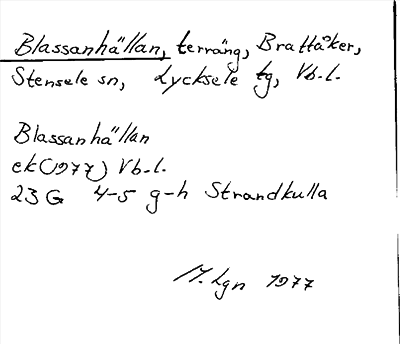 Blassanhällan, terräng, Brattåker,
Stensele sn, Lycksele tg, Vb.l.
Blassanhällan
ek(1977) Vb.l.
23 G 4-5 g-h Strandkulla
M. Lgn 1977